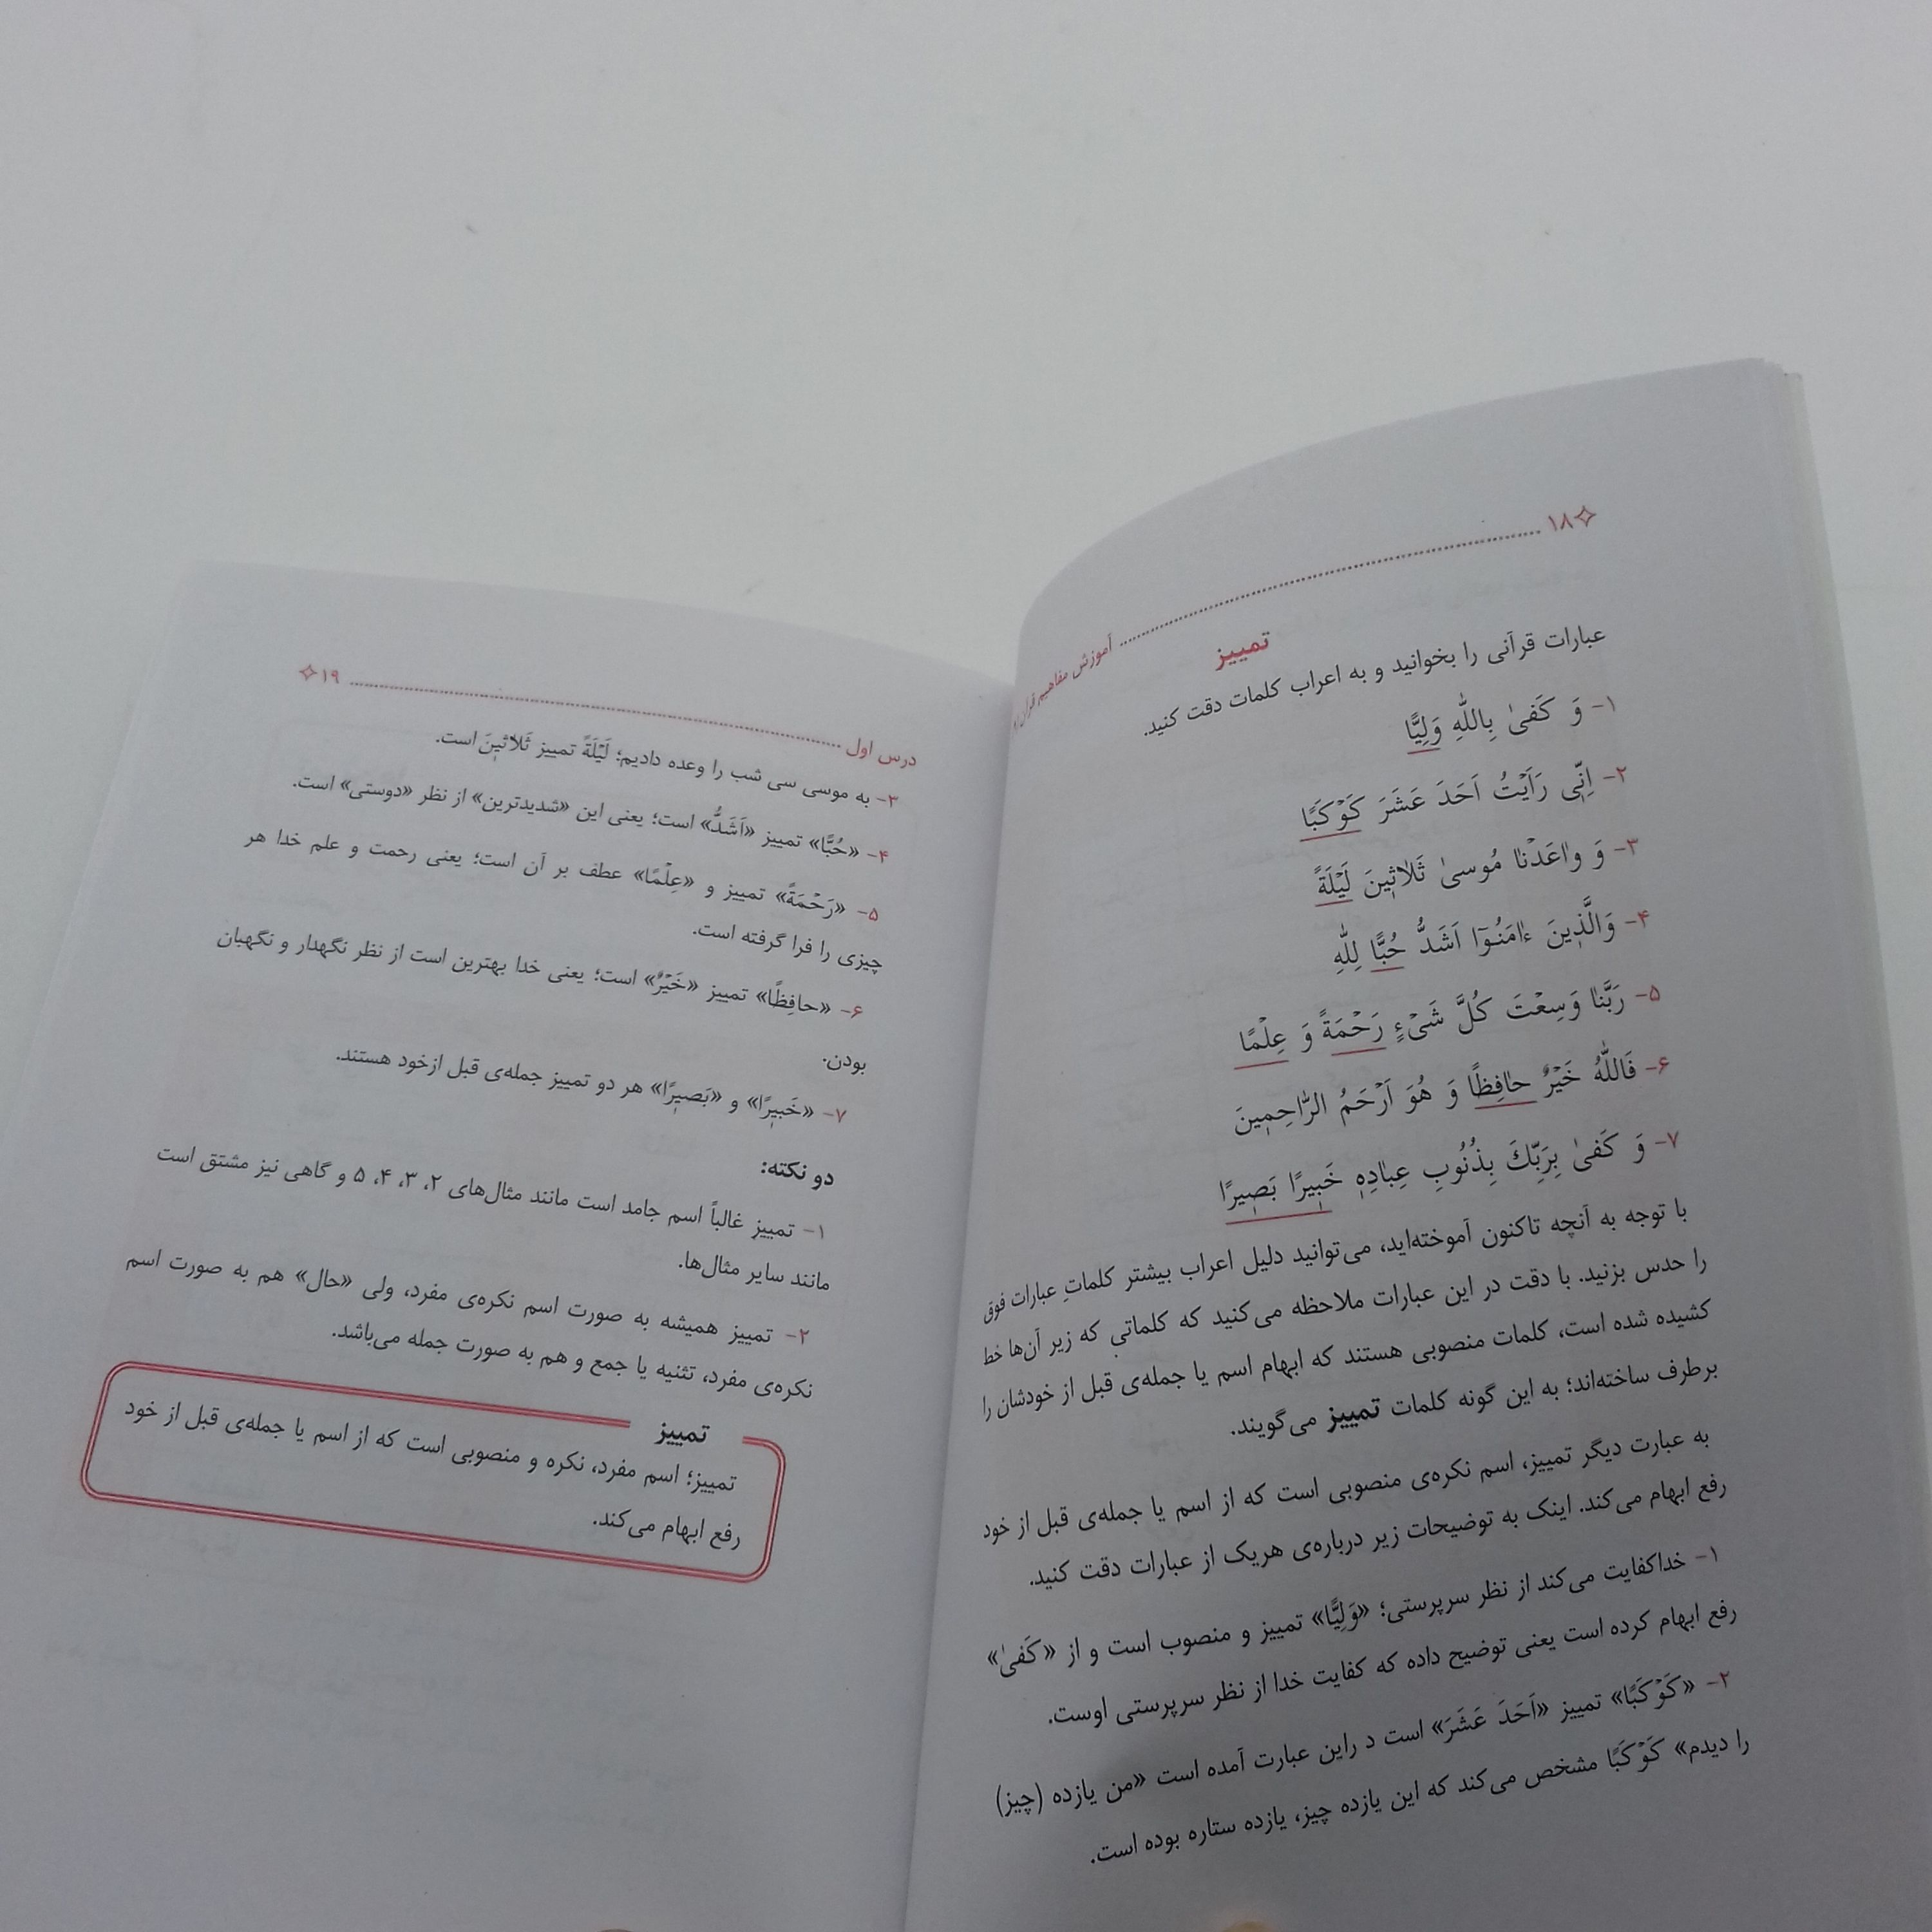 ۱۸ آموزش مفاهیم قرآن
تمییز
عبارات قرآنی را بخوانید و به اعراب کلمات دقت کنید.
۱- وَ كَفىٰ بِاللّٰهِ وَلِيًّا
۲- اِنّٖى رَاَيْتُ اَحَدَ عَشَرَ كَوْكَبًا
۳- وَ واعَدْنا مُوسىٰ ثَلاثٖينَ لَيْلَةً
۴- وَالَّذٖينَ ءامَنُوٓا اَشَدُّ حُبًّا لِلّٰهِ
۵- رَبَّنا وَسِعْتَ كُلَّ شَىْءٍ رَحْمَةً وَ عِلْمًا
۶- فَاللّٰهُ خَيْرٌ حافِظًا وَ هُوَ اَرْحَمُ الرّاحِمٖينَ
۷- وَ كَفىٰ بِرَبِّكَ بِذُنُوبِ عِبادِهٖ خَبٖيرًا بَصٖيرًا
با توجه به آنچه تاکنون آموخته‌اید، می‌توانید دلیل اعراب بیشتر کلماتِ عبارات فوق
را حدس بزنید. با دقت در این عبارات ملاحظه می‌کنید که کلماتی که زیر آن‌ها خط
کشیده شده است، کلمات منصوبی هستند که ابهام اسم یا جمله‌ی قبل از خودشان را
برطرف ساخته‌اند؛ به این گونه کلمات تمییز می‌گویند.
به عبارت دیگر تمییز، اسم نکره‌ی منصوبی است که از اسم یا جمله‌ی قبل از خود
رفع ابهام می‌کند. اینک به توضیحات زیر درباره‌ی هریک از عبارات دقت کنید.
۱- خداکفایت می‌کند از نظر سرپرستی؛ «وَلِيًّا» تمییز و منصوب است و از «كَفىٰ»
رفع ابهام کرده است یعنی توضیح داده که کفایت خدا از نظر سرپرستی اوست.
۲- «كَوْكَبًا» تمییز «اَحَدَ عَشَرَ» است د راین عبارت آمده است «من یازده (چیز)
را دیدم» كَوْكَبًا مشخص می‌کند که این یازده چیز، یازده ستاره بوده است.
درس اول ۱۹
۳- به موسی سی شب را وعده دادیم؛ لَيْلَةً تمییز ثَلاثٖينَ است.
۴- «حُبًّا» تمییز «اَشَدُّ» است؛ یعنی این «شدیدترین» از نظر «دوستی» است.
۵- «رَحْمَةً» تمییز و «عِلْمًا» عطف بر آن است؛ یعنی رحمت و علم خدا هر
چیزی را فرا گرفته است.
۶- «حافِظًا» تمییز «خَيْرٌ» است؛ یعنی خدا بهترین است از نظر نگهدار و نگهبان
بودن.
۷- «خَبٖيرًا» و «بَصٖيرًا» هر دو تمییز جمله‌ی قبل ازخود هستند.
دو نکته:
۱- تمییز غالباً اسم جامد است مانند مثال‌های ۲، ۳، ۴، ۵ و گاهی نیز مشتق است
مانند سایر مثال‌ها.
۲- تمییز همیشه به صورت اسم نکره‌ی مفرد، ولی «حال» هم به صورت اسم
نکره‌ی مفرد، تثنیه یا جمع و هم به صورت جمله می‌باشد.
تمییز
تمییز؛ اسم مفرد، نکره و منصوبی است که از اسم یا جمله‌ی قبل از خود
رفع ابهام می‌کند.